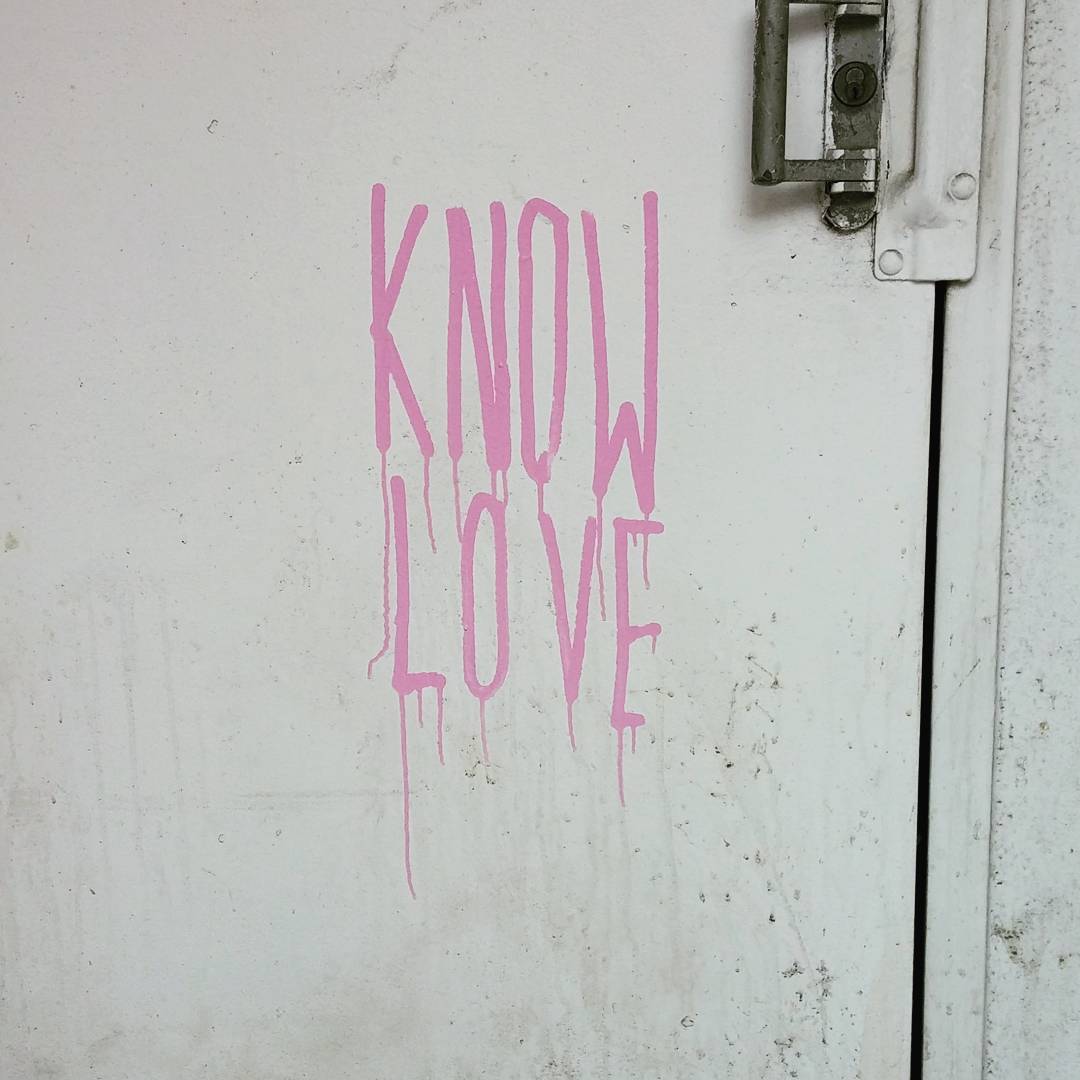 KNOW
LOVE